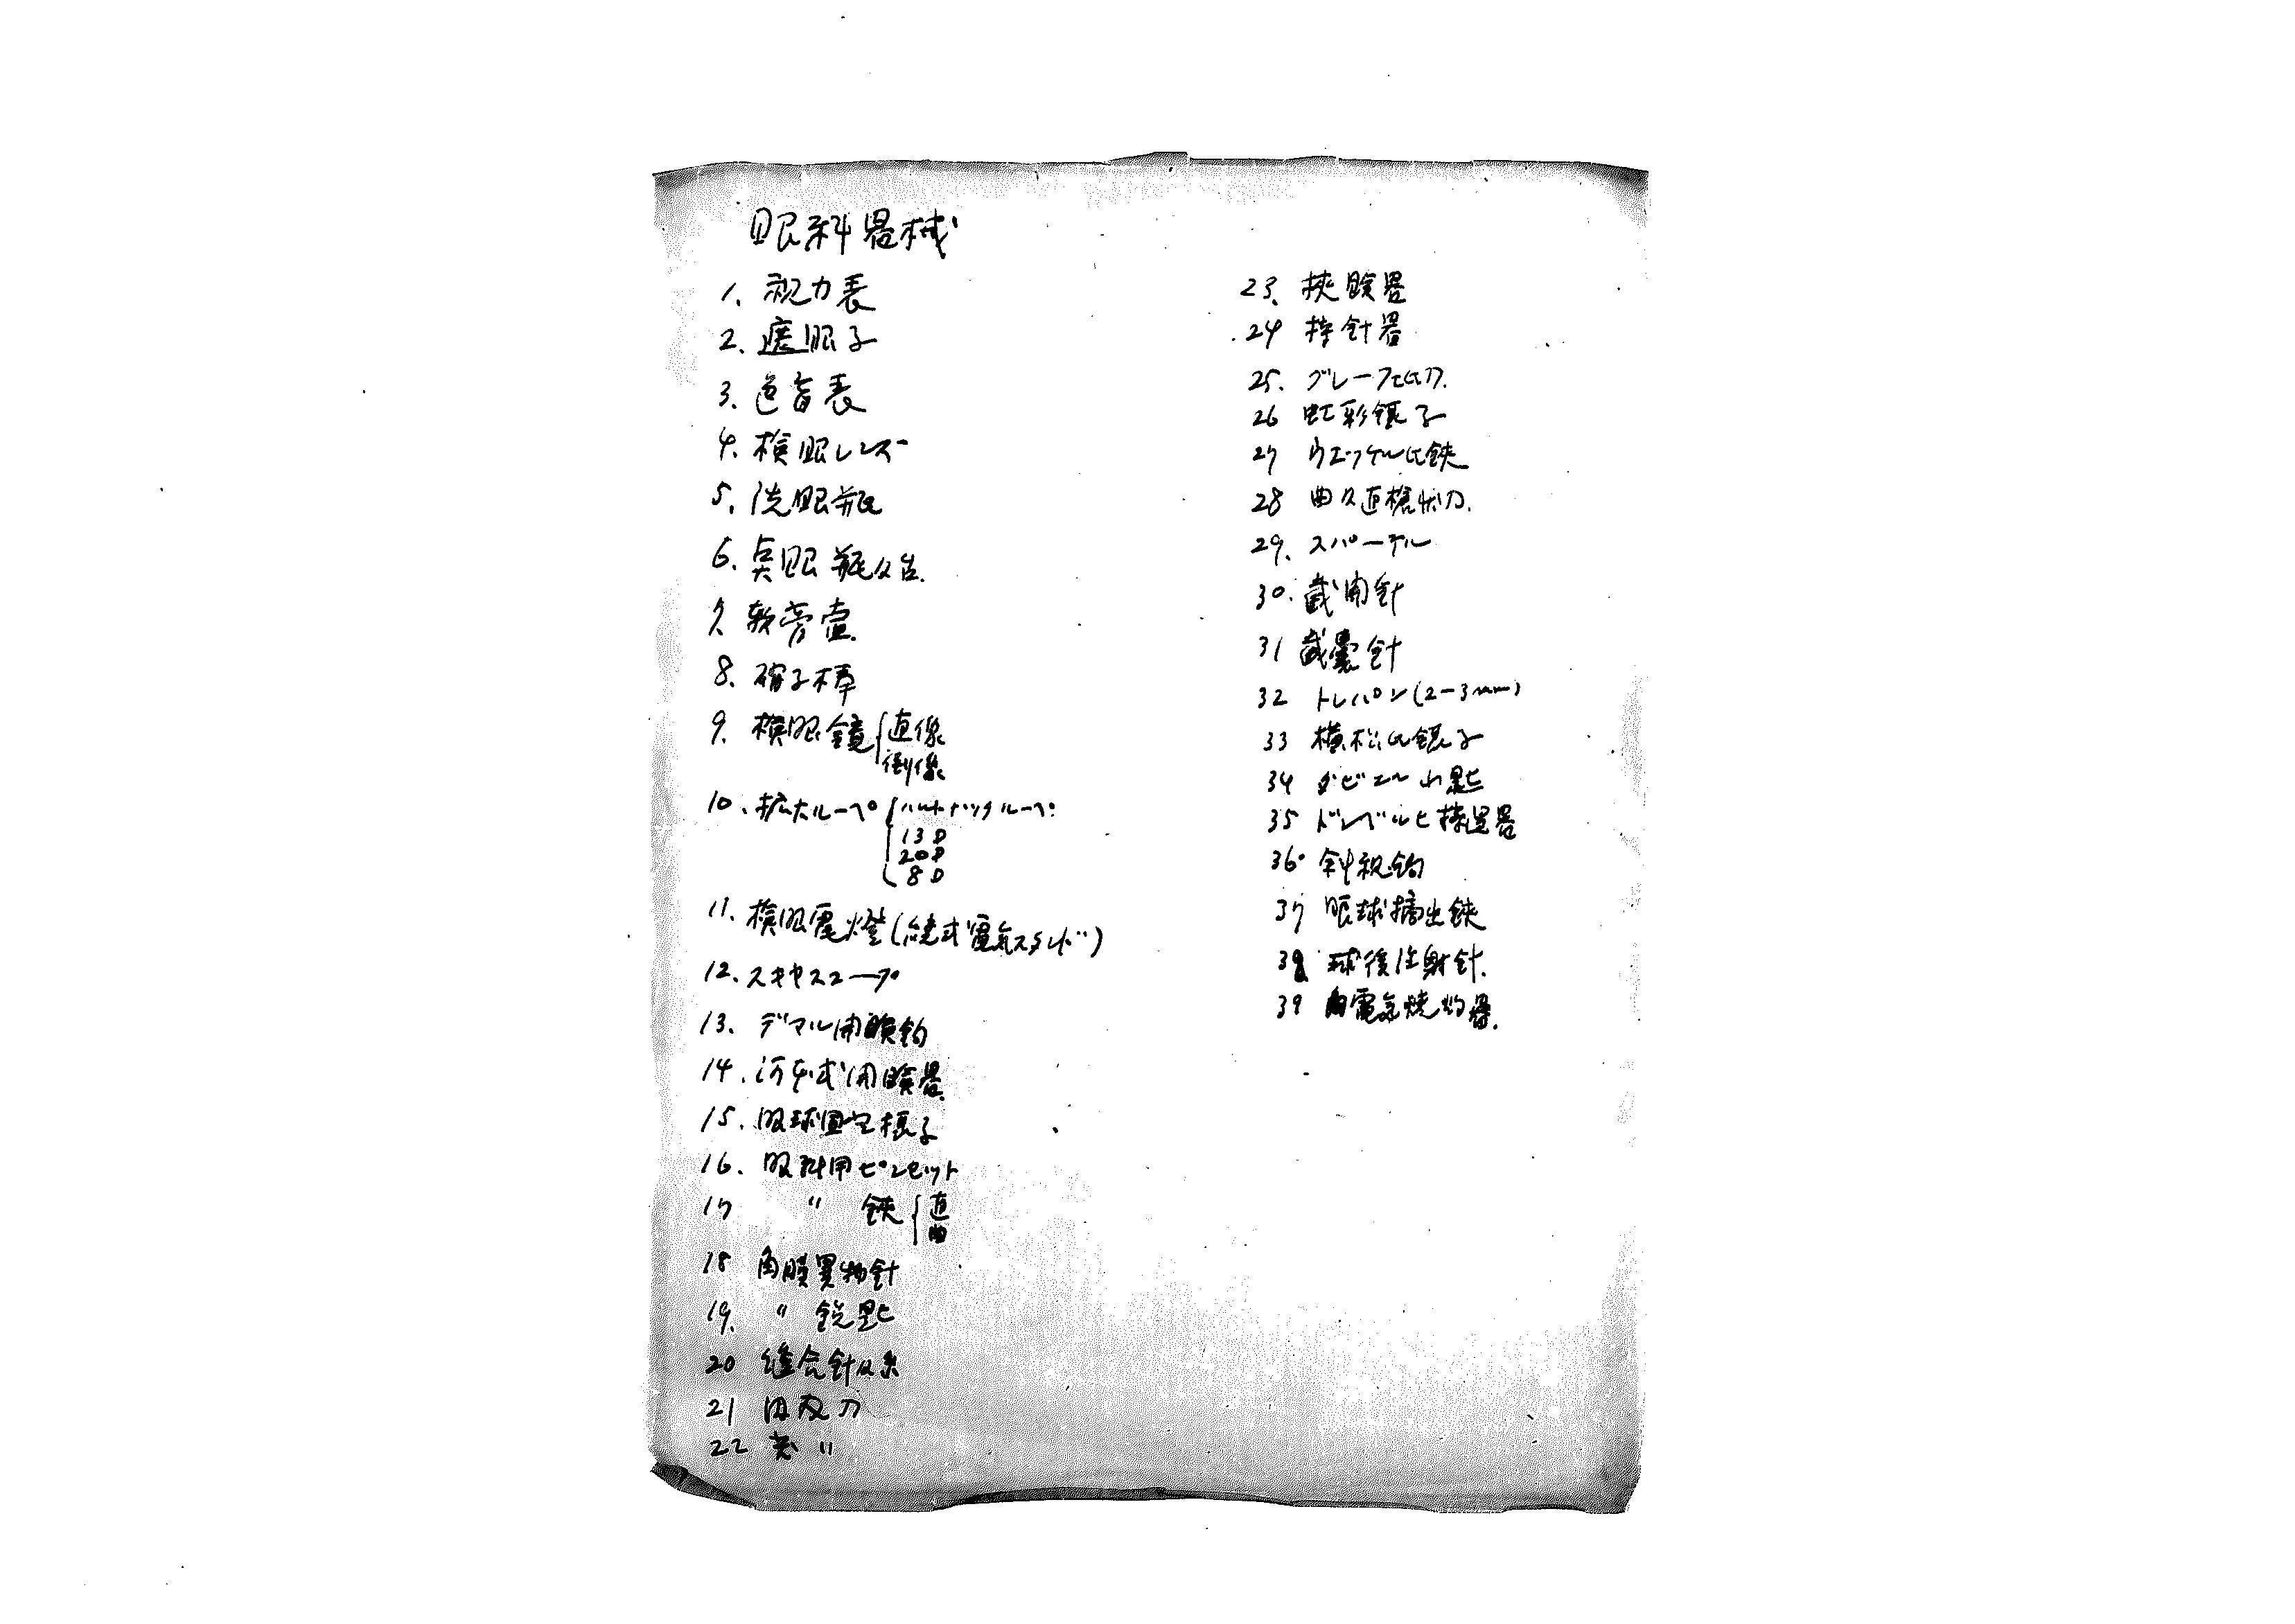 眼科器械
1. 視力表
2. 遮眼子
3. 色盲表
4. 検眼レンズ
5. 洗眼瓶
6. 点眼瓶及台
7. 軟膏壷
8. 硝子棒
9. 検眼鏡 直像
倒像
10. 拡大ルーペ ハルトナックルーペ
13D
20D
8D
11. 検眼電燈(　式電気スタンド)
12. スキヤスコープ
13. デマル開瞼鈎
14. 河本式開瞼器
15. 眼球固定鑷子
16. 眼科用ピンセット
17 〃 鋏 直
曲
18 角膜異物針
19. 〃 鋭匙
20 縫合針及糸
21 円刃刀
22 尖〃
23. 挾瞼器
24 持針器
25. グレーフェ氏刀.
26 虹彩鑷子
27 ウエッケル氏鋏
28 曲及直槍状刀.
29. スパーテル
30. 截開針
31 截嚢針
32 トレパン(2-3mm)
33 横松氏鑷子
34 ダビエール小匙
35
36 斜視鈎
37 眼球摘出鋏
38 球後注射針.
39 電気焼灼器.